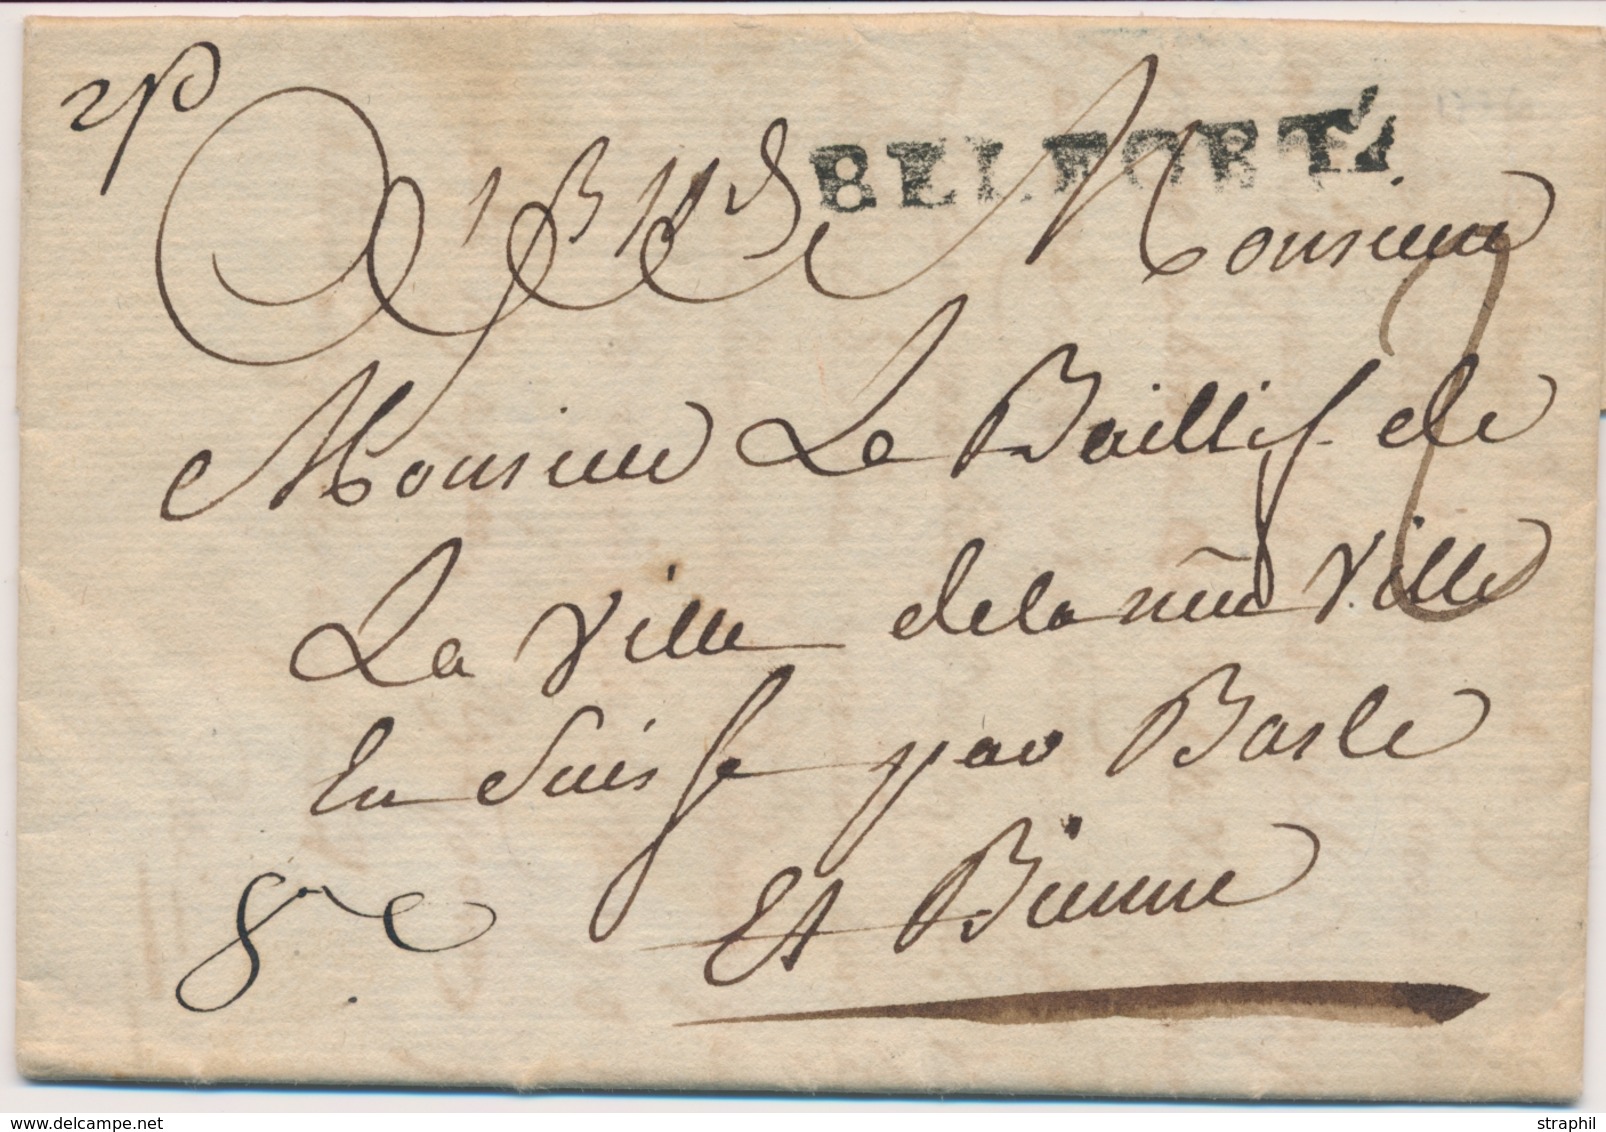 BELFORT
Monsieur
Monsieur Le Baillif de
La Ville dela neuve Ville
En Suisse par Basle
Et Bienne
www.delcampe.net
straphil